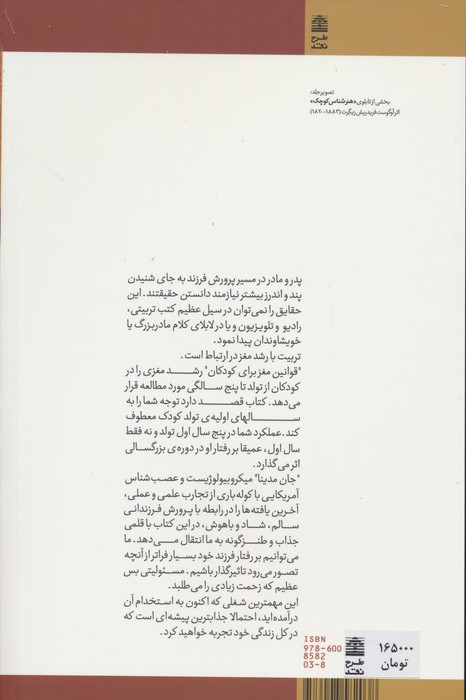 طرح نقد
تصویر جلد:
بخشی از تابلوی «هنرشناس کوچک»
اثر آوگوست فریدریش زیگرت (۱۸۸۳-۱۸۲۰)
پدر و مادر در مسیر پرورش فرزند به جای شنیدن
پند و اندرز بیشتر نیازمند دانستن حقیقتند. این
حقایق را نمی‌توان در سیل عظیم کتب تربیتی،
رادیو و تلویزیون و یا در لابلای کلام مادربزرگ یا
خویشاوندان پیدا نمود.
تربیت با رشد مغز در ارتباط است.
"قوانین مغز برای کودکان" رشد مغزی را در
کودکان از تولد تا پنج سالگی مورد مطالعه قرار
می‌دهد. کتاب قصد دارد توجه شما را به
سالهای اولیه‌ی تولد کودک معطوف
کند. عملکرد شما در پنج سال اول تولد و نه فقط
سال اول، عمیقا بر رفتار او در دوره‌ی بزرگسالی
اثر می‌گذارد.
"جان مدینا" میکروبیولوژیست و عصب‌شناس
آمریکایی با کوله باری از تجارب علمی و عملی،
آخرین یافته‌ها را در رابطه با پرورش فرزندانی
سالم، شاد و باهوش، در این کتاب با قلمی
جذاب و طنزگونه به ما انتقال می‌دهد. ما
می‌توانیم بر رفتار فرزند خود بسیار فراتر از آنچه
تصور می‌رود تاثیرگذار باشیم. مسئولیتی بس
عظیم که زحمت زیادی را می‌طلبد.
این مهمترین شغلی که اکنون به استخدام آن
درآمده‌اید، احتمالا جذابترین پیشه‌ای است که
در کل زندگی خود تجربه خواهید کرد.
ISBN
978-600
8582
03-8
طرح نقد
۱۶۵۰۰۰
تومان